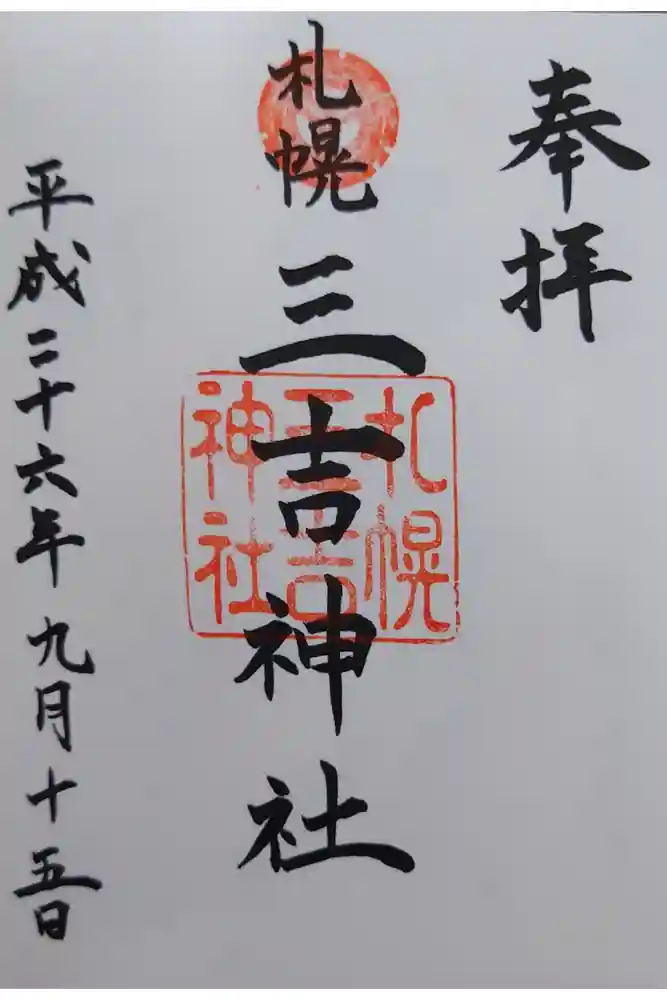 奉拝
札幌三吉神社
札幌
三吉
神社
平成二十六年九月十五日